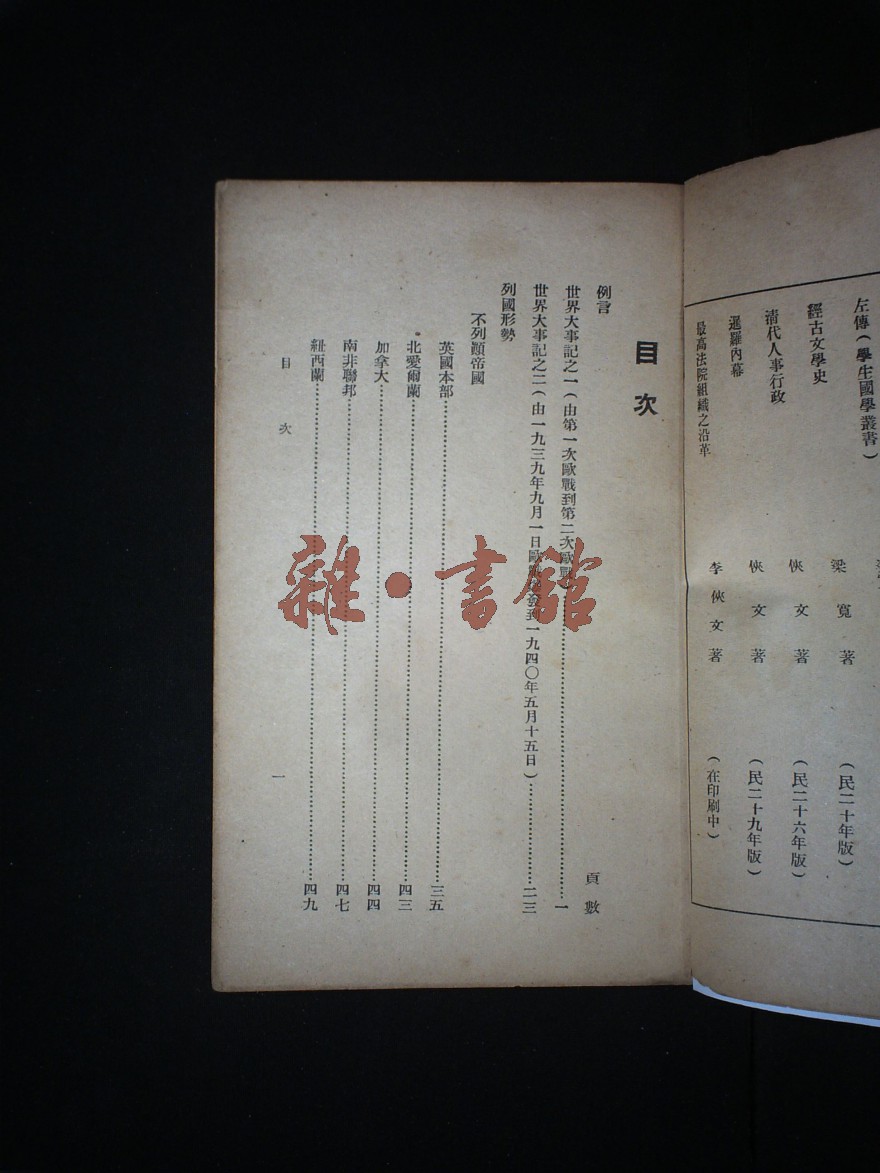 左傳(學生國學叢書)
梁寬著(民二十年版)
經古文學史
俠文著(民二十六年版)
清代人事行政
俠文著(民二十九年版)
暹羅內幕
李俠文著(在印刷中)
最高法院組織之沿革
目次
頁數
例言
世界大事記之一(由第一次歐戰到第二次歐戰)……一
世界大事記之二(由一九三九年九月一日歐戰爆發到一九四〇年五月十五日)……二三
列國形勢
不列顛帝國
英國本部……三五
北愛爾蘭……四三
加拿大……四四
南非聯邦……四七
紐西蘭……四九
目次
一
雜·書館